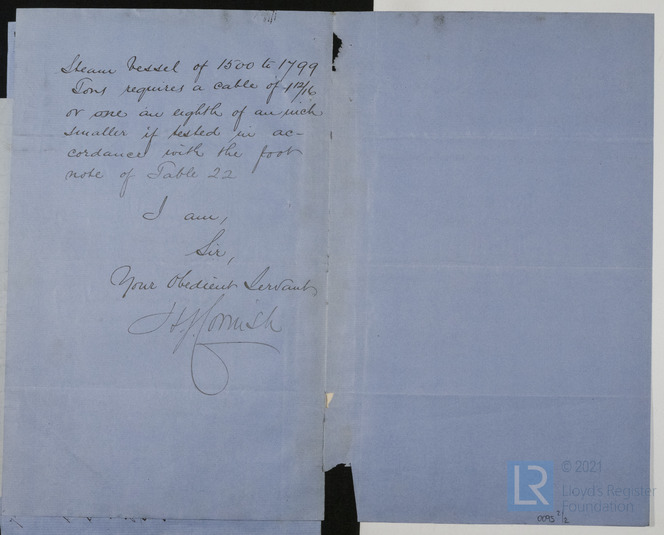 Steam Vessel of 1500 to 1799
Tons requires a cable of 1 12/16
or one an eighth of an inch
smaller if tested in ac-
cordance with the foot
note of Table 22
I am,
Sir,
Your Obedient Servant
H J Cornish
LR
© 2021
Lloyd's Register
Foundation
0095 2/2